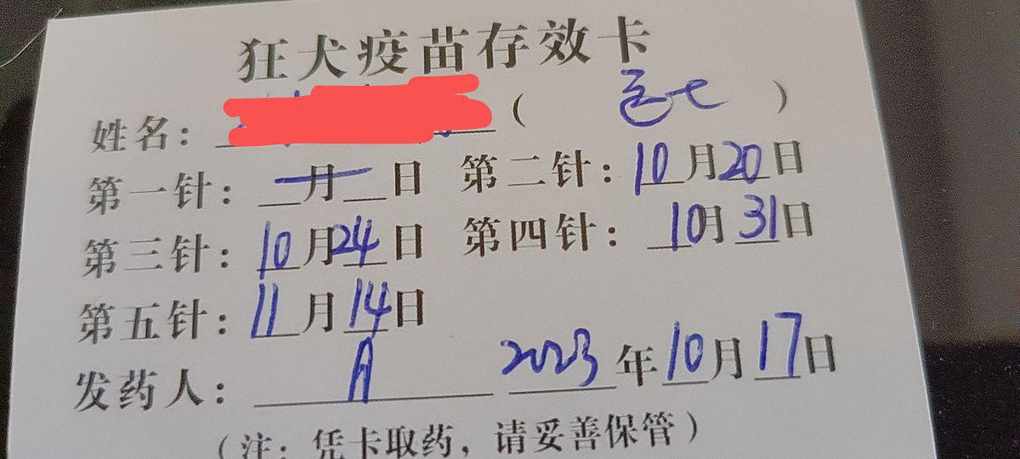 狂犬疫苗存效卡
姓名：（ ）
第一针： 月 日 第二针：10月20日
第三针：10月24日 第四针：10月31日
第五针：11月14日
发药人： 2023年10月17日
（注：凭卡取药，请妥善保管）